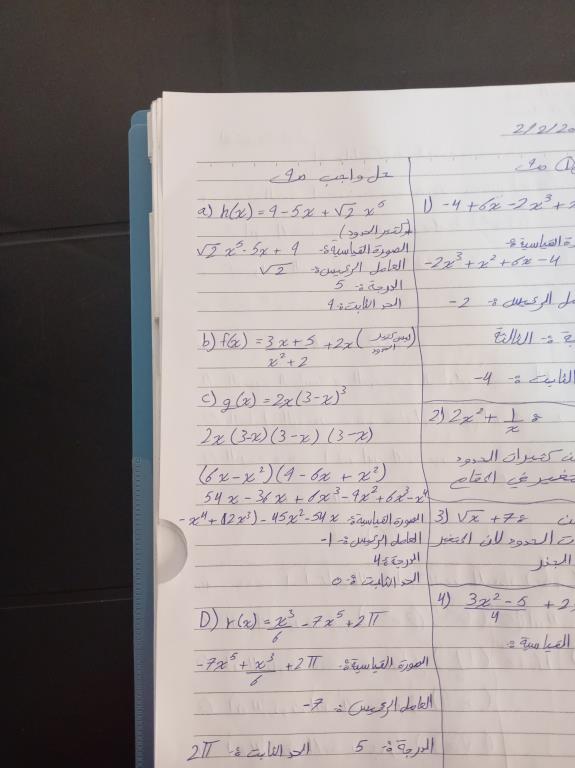 2/2/20
حل واجب صف
a) h(x) = 9 - 5x + √2 x⁵
(كثير الحدود)
الصورة القياسية:- √2 x⁵ - 5x + 9
العامل الرئيس:- √2
الدرجة:- 5
الحد الثابت:- 9
b) f(x) = 3x + 5 / x² + 2 + 2x (ليس كثير الحدود)
c) g(x) = 2x(3-x)³
2x (3-x)(3-x) (3-x)
(6x - x²)(9 - 6x + x²)
54x - 36x + 6x³ - 9x² + 6x³ - x⁴
الصورة القياسية:- -x⁴ + 12x³) - 45x² - 54x
العامل الرئيس:- -1
الدرجة:- 4
الحد الثابت:- 0
D) r(x) = x³/6 - 7x⁵ + 2π
الصورة القياسية:- -7x⁵ + x³/6 + 2π
العامل الرئيس:- -7
الدرجة:- 5 الحد الثابت:- 2π
صف
1) -4 + 6x - 2x³ +
القياسية:
-2x³ + x² + 6x - 4
الرئيس:- -2
:- الثالثة
الثابت:- -4
2) 2x² + 1/x :
كثيرات الحدود
متغير في المقام
3) √x + 7 :
الحدود لأن المتغير
الجذر
4) 3x² - 5 / 4 + 2
القياسية: